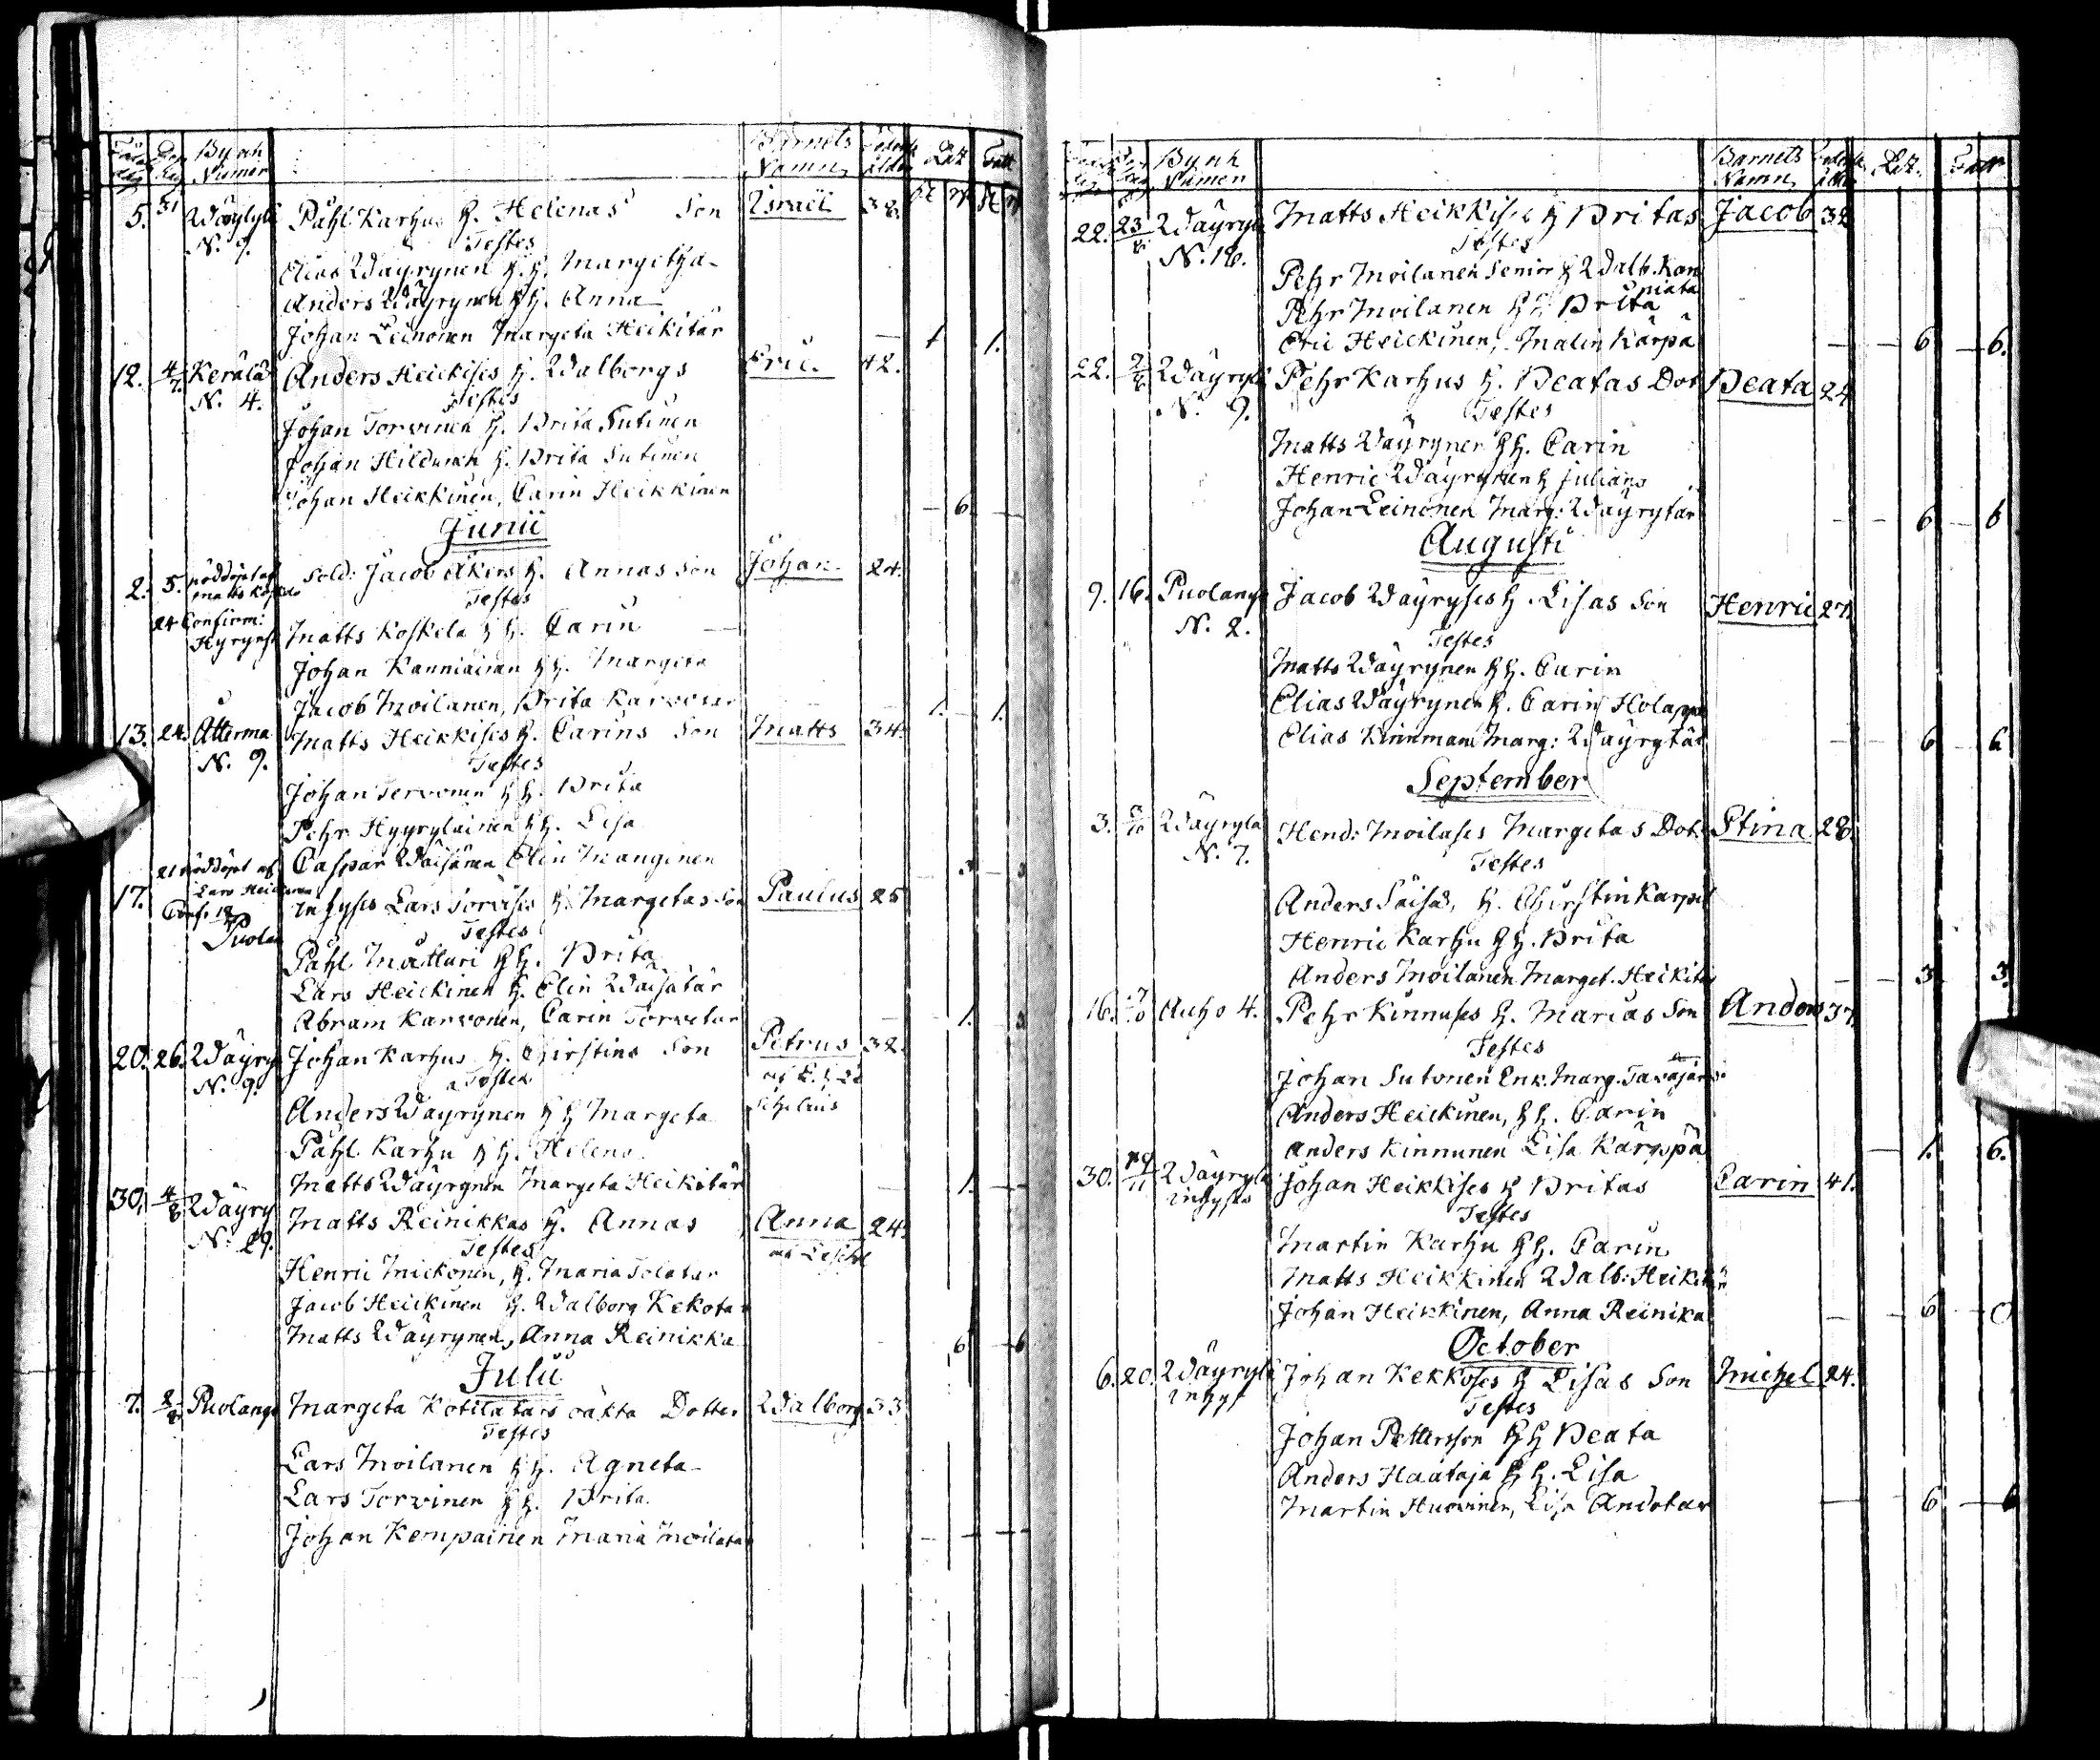 Byns Numer Barnets Namn
5. 31 Wäyrylä Påhl Karhus H. Helenas Son Israel 38.
N. 9. Testes
Elias Wäyrynen H. H. Margetha
Anders Wäyrynen H H. Anna
Johan Leinonen Margeta Heikitär 1 1.
12. 4/7 Kerälä Anders Heickises H. Walborgs Eric. 42.
N. 4. Testes
Johan Torvinen H. Brita Sutinen
Johan Hilduinen H. Brita Sutinen
Johan Heikkinen, Carin Heikkinen 6
Junii
2. 5. nöddöpt af Sold: Jacob Åkers H. Annas Son Johan 24.
Matts Koskelo Testes
24 Confirm:
Hyryns Matts Koskela H H. Carin
Johan Kanniainen H H. Margeta
Jacob Moilanen, Brita Karvotar 1. 1.
13. 24. Atterma Matts Heikkises H. Carins Son Matts 34.
N. 9. Testes
Johan Tervonen H H. Brita
Pehr Hyyryläinen H H. Lisa
Caspar Wäisänen Elin Manginen 3 3
17. 21 nöddöpt af Lars Heickinen Inhyses Lars Torvises H. Margetas Son Paulus 25
Conf. 18 Puola Testes
Påhl Mättäri H H. Brita
Lars Heickinen H. Elin Wäisätär
Abram Karvonen, Carin Torvetar 1.
20. 26. Wäyry Johan Karhus H. Chirstins Son Petrus 32.
N. 9. Testes
Anders Wäyrynen H H Margeta
Påhl Karhu H H. Helena
Matts Wäyrynen Margeta Heikitär 1.
30. 4/8 Wäyry Matts Reinikkas H. Annas Anna 24.
N. 29. Testes
Henric Mickonen, H. Maria Tolatar
Jacob Heickinen H. Walborg Kekotar
Matts Wäyrynen, Anna Reinikka 6 6
Julii
7. Puolang Margeta Kotilatars oäkta Dotter Walborg 33
Testes
Lars Moilanen H H. Agneta
Lars Torvinen H H. Brita.
Johan Kempainen Maria Moilatar
Byns Namen Barnets Namn
22. 23/8 Wäyrylä Matts Heikkises H Britas Jacob 32
N. 18. Testes
Pehr Moilanen Senior H Walb. Kanniata
Pehr Moilanen H H Brita
Eric Heickinen, Malin Kärpä 6 6.
22. Wäyrylä Pehr Karhus H. Beatas Dot Beata 24
N. 9. Testes
Matts Wäyrynen H H. Carin
Henric Wäyrynen H Juliana
Johan Leinonen Marg: Wäyrytär 6 6
Augusti
9. 16. Puolang Jacob Wäyryses H. Lisas Son Henric 27.
N. 2. Testes
Matts Wäyrynen H H. Carin
Elias Wäyrynen H. Carin Holappa
Elias Kinnunen Marg: Wäyrytär 6 6
September
3. Wäyrylä Hend: Moilases Margetas Dot. Stina 28.
N. 7. Testes
Anders Säisä, H. Chirstin Karpit
Henric Karhu H H. Brita
Anders Moilanen Marget. Heikitär 3 3.
16. Auho 4. Pehr Kinnuses H. Marias Son Anders 37.
Testes
Johan Sutonen Enk. Marg. Tavajärvi
Anders Heickinen, H H. Carin
Anders Kinnunen Lisa Kärppä 1. 6.
30. Wäyrylä Johan Heikkises H Britas Carin 41.
Inhyses Testes
Martin Karhu H H. Carin
Matts Heikkinen Walb: Heikitär
Johan Heikkinen, Anna Reinika 6
October
6. 20. Wäyrylä Johan Kekkoses H Lisas Son Michel 24.
Inhys Testes
Johan Pettersson H H Beata
Anders Haataja H H. Lisa
Martin Huovinen, Lisa Andotar 6 6